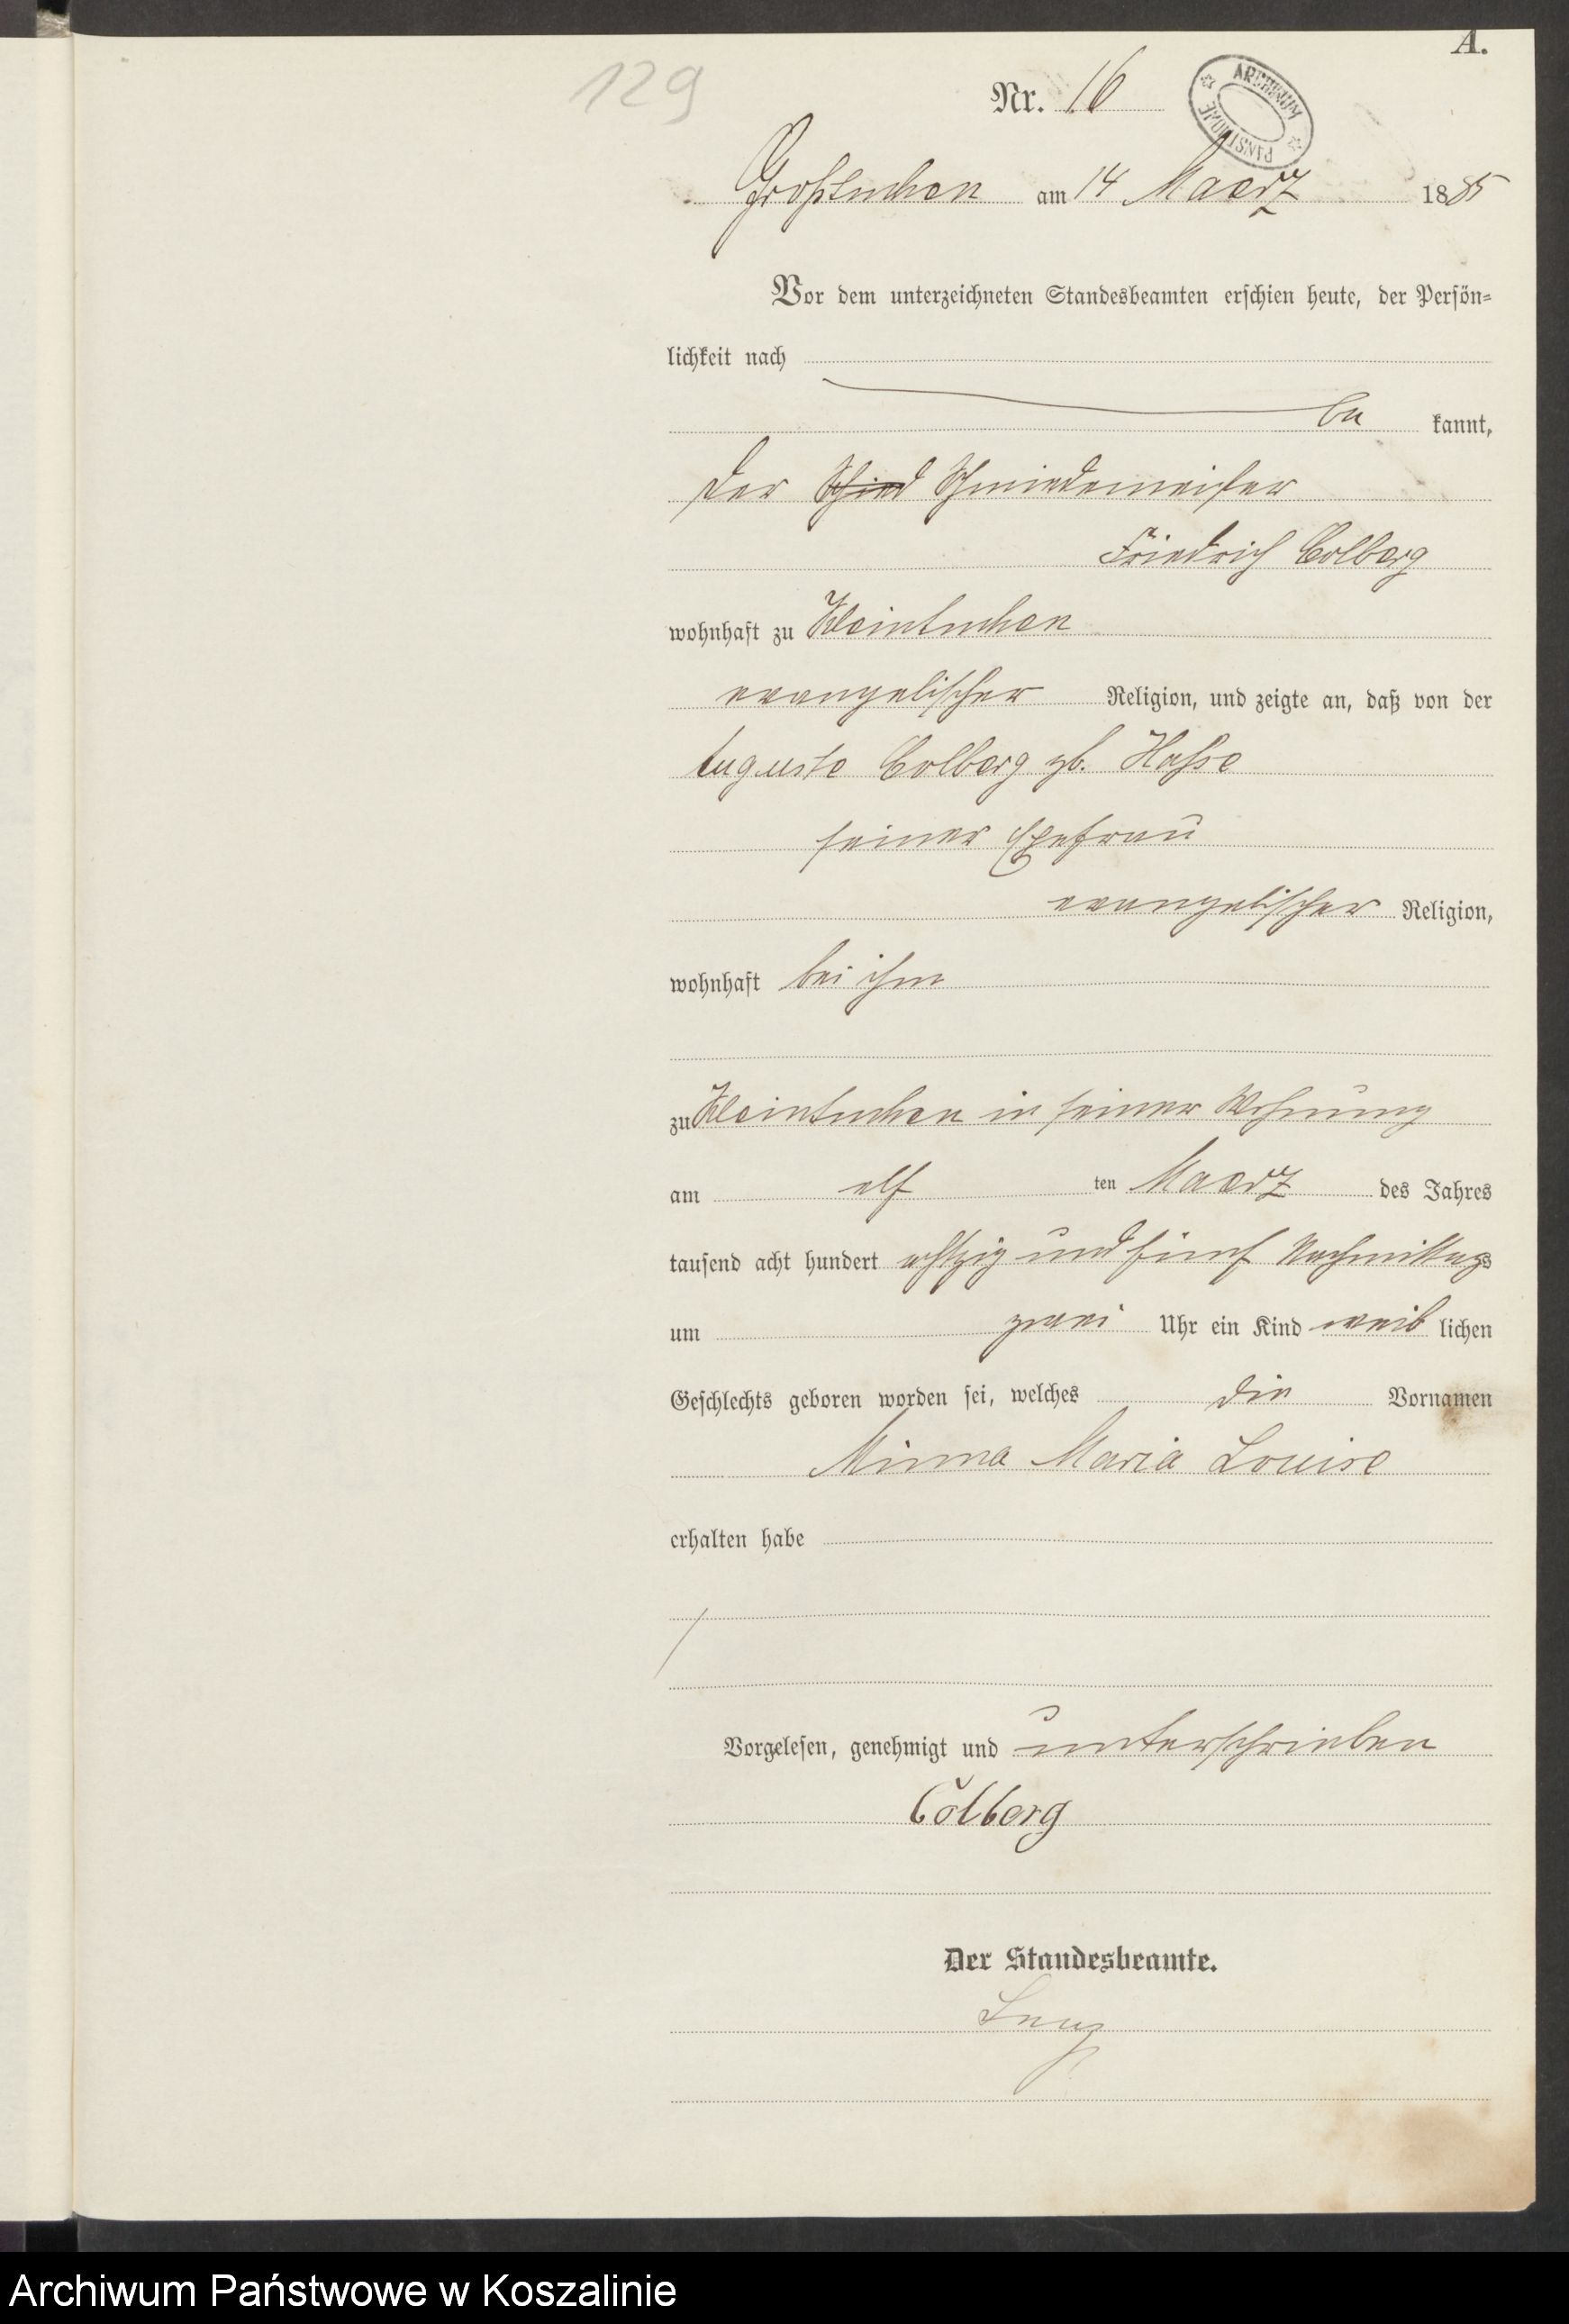 A.
129
Nr. 16
ARCHIWUM PAŃSTWOWE
Großtuchen am 14 Maerz 1885
Vor dem unterzeichneten Standesbeamten erschien heute, der Persön=
lichkeit nach
be kannt,
der Schmied Schmiedemeister
Friedrich Colberg
wohnhaft zu Kleintuchen
evangelischer Religion, und zeigte an, daß von der
Auguste Colberg gb. Hasse
seiner Ehefrau
evangelischer Religion,
wohnhaft bei ihm
zu Kleintuchen in seiner Wohnung
am elf ten Maerz des Jahres
tausend acht hundert achtzig und fünf Nachmittags
um zwei Uhr ein Kind weib lichen
Geschlechts geboren worden sei, welches die Vornamen
Minna Maria Louise
erhalten habe
Vorgelesen, genehmigt und unterschrieben
Colberg
Der Standesbeamte.
Archiwum Państwowe w Koszalinie